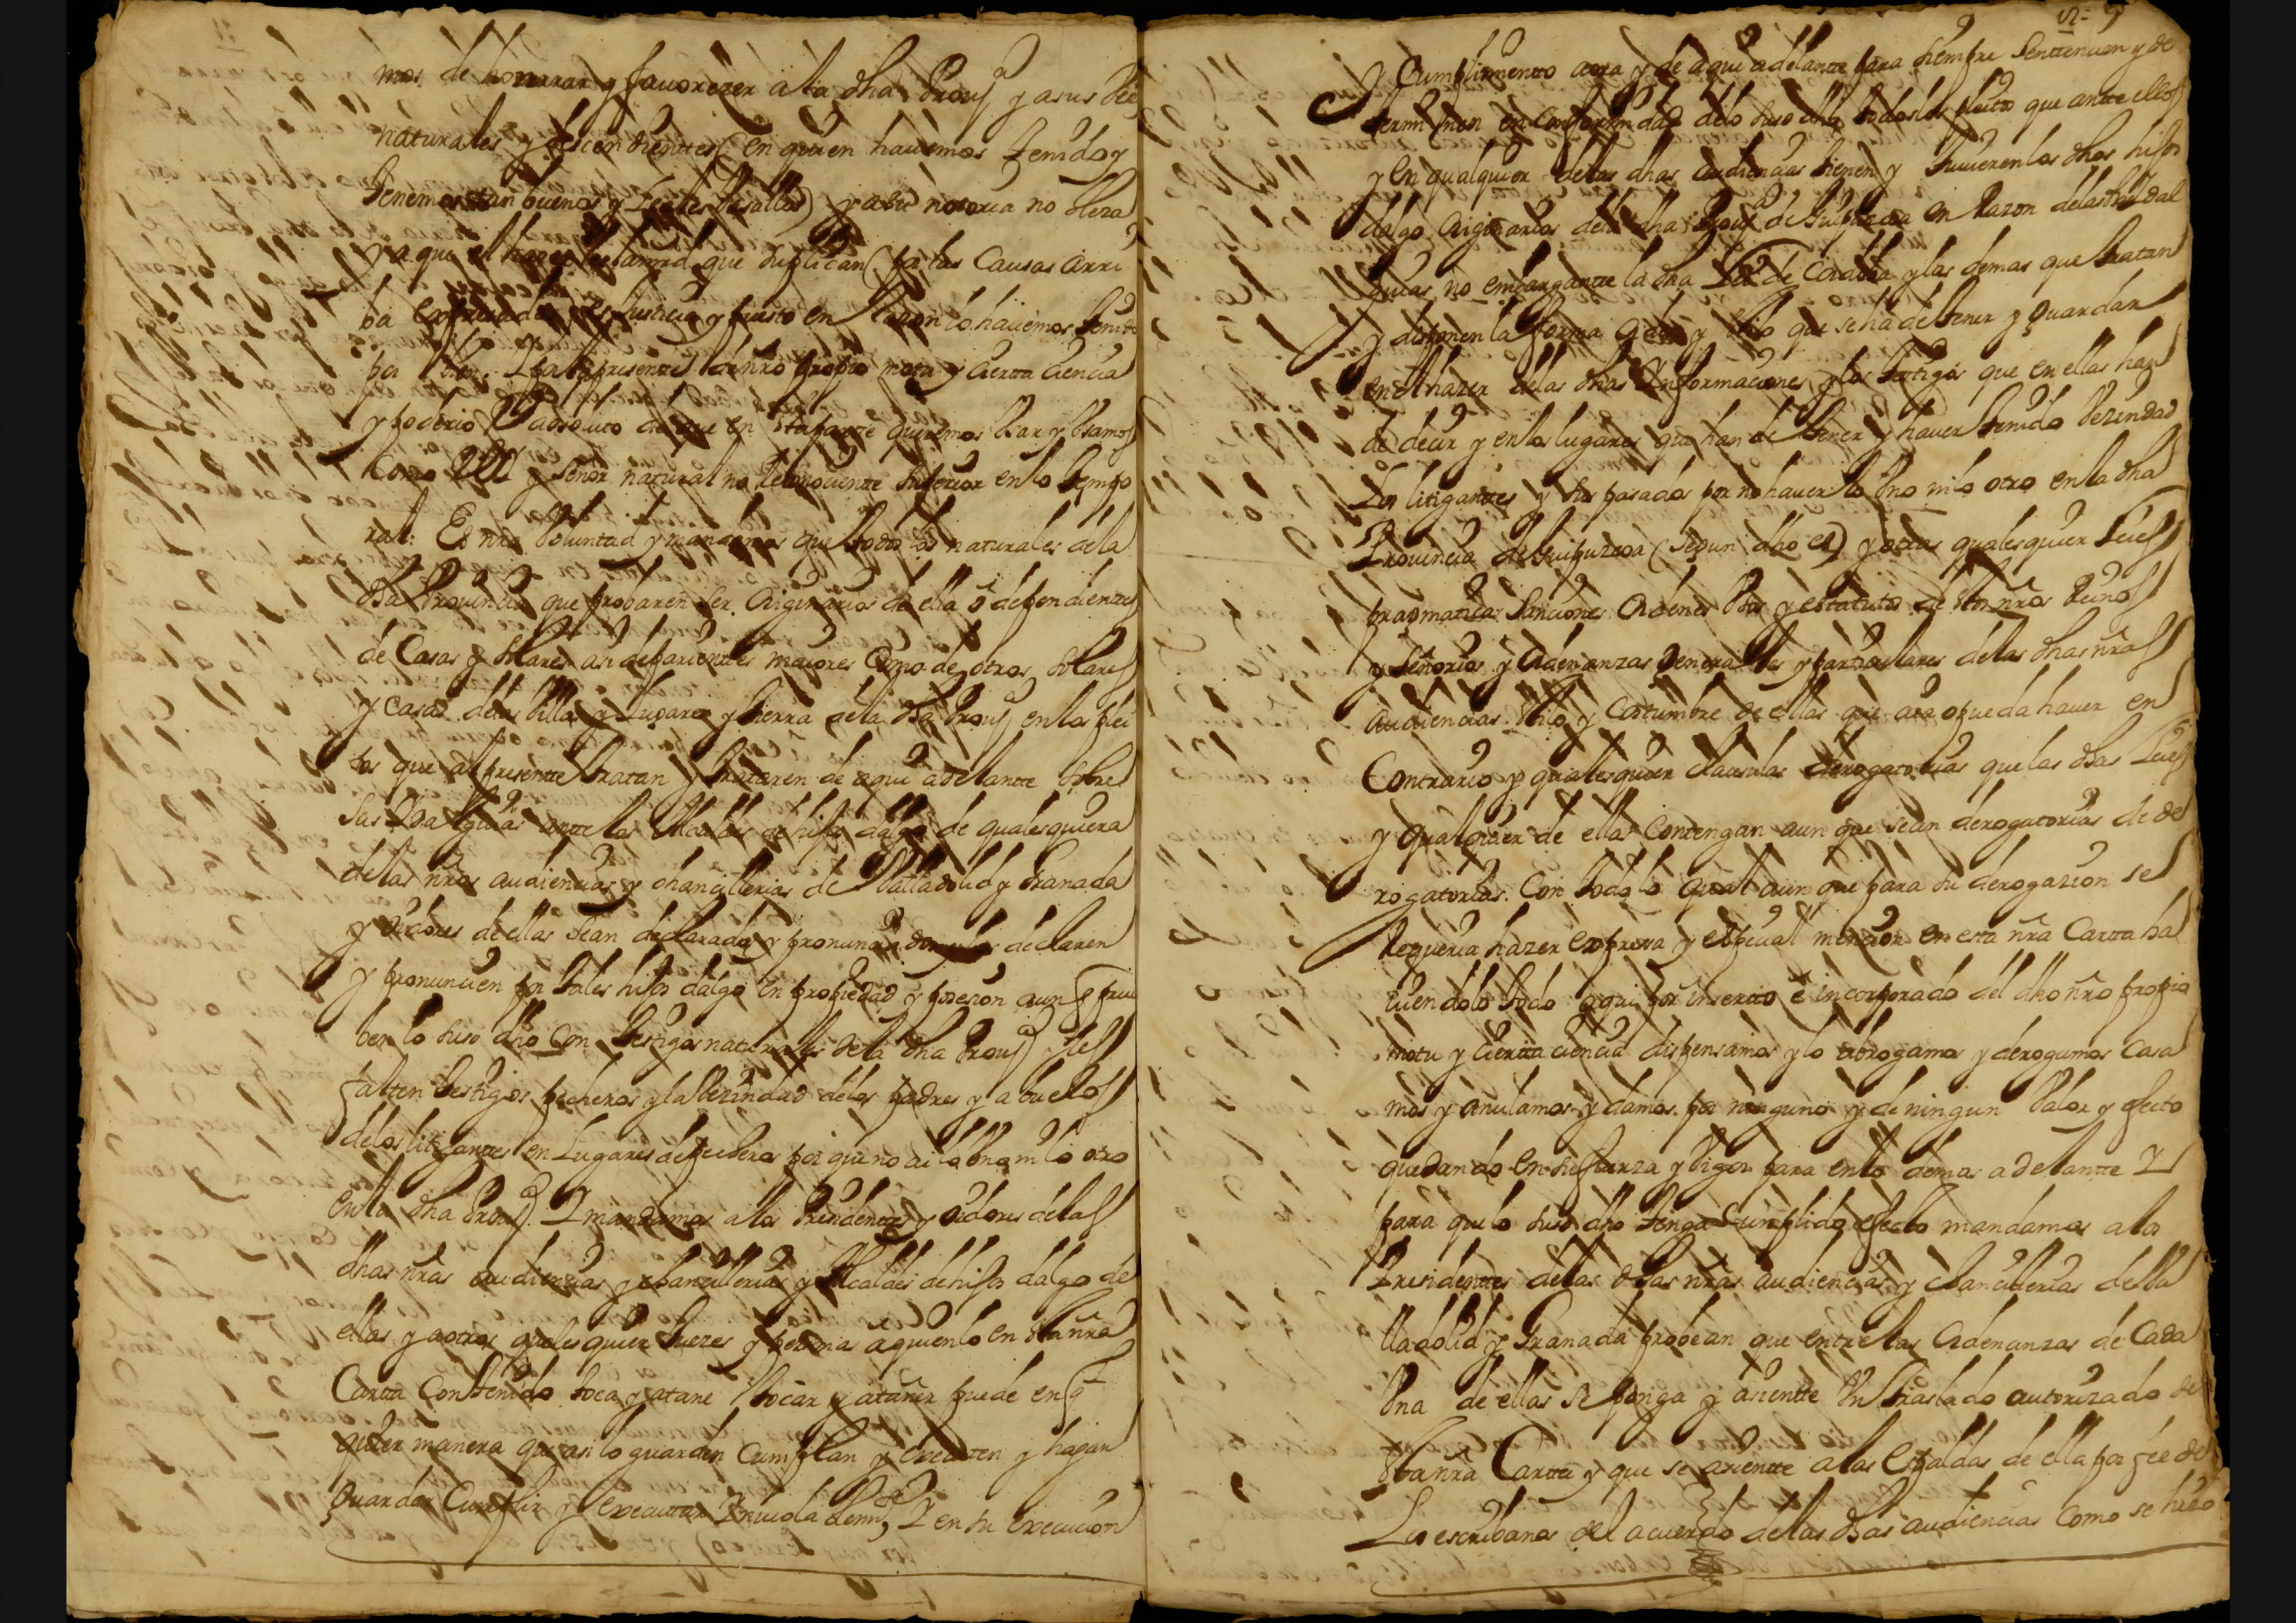 mos de honrrar y favorezer a la dha Prouª y a sus Vez
naturales y descendienttes (en quien hauemos tenido y
tenemos tan buenos y leales Vasallos) y a su notoria nobleza
y a que el hazerles la mrd que suplican (por las Causas arri
ba expresadas) es Justicia y puesto en Razon lo hauemos tenido
por bien. I por la presentte de nro propio motu y cierta ciencia
y poderio Rl absoluto de que en esta parte queremos Vsar y Vsamos
como Rey y señor natural no Reconociente superior en lo tempo
ral: Es nra Voluntad y mandamos que todos los naturales de la
dha Prouincia que probaren ser originarios de ella o dependientes
de Casas y solares asi de parienttes maiores Como de otros solares
y casas de las Villas y Lugares y tierra de la dha Prouª en los plei
tos que al presentte tratan y trataren de aqui adelante sobre
sus Ydalguias ante los Alcaldes de hijos dalgo de qualesquiera
de las nras audiencias y chancillerias de Valladolid y Granada
y oidores de ellas sean declarados y pronunciados y los declaren
y pronuncien por tales hijos dalgo en propiedad y posesion aunq prue
ben lo suso dho con testigos naturales de la dha Prouª y les
falten testigos pecheros y la Vezindad de los padres y abuelos
de los litigantes en Lugares de pecheros por que no ai lo Vno ni lo otro
en la dha Prouª. I mandamos a los Presidentes y oidores de las
dhas nras audienzias y chancillerias y Alcaldes de hijos dalgo de
ellas y a otros quales quier Juezes y persona a quien lo en esta nra
Carta Contenido toca y atañe o tocar y atañer puede en qª
quier manera que asi lo guarden Cumplan y executen y hagan
guardar Cumplir y executtar Inuiolablemte, I en su execucion
y Cumplimento aora y de aqui adelantte para siempre Sentencien y de
termminen en Conformidad de lo suso dho todos los pleitos que antte ellos
y en qualquier de las dhas audiencias tienen y tuuieren los dhos hijos
dalgo originarios de la dha Prouª de Guipuzcoa en Razon de las hidal
guias, no embargantte la dha Ley de Cordoba y las demas que tratan
y disponen la forma orden y estilo que se ha de tener y guardar
en el hazer de las dhas Informaciones y los testigos que en ellas han
de decir y en los lugares que han de tener y hauer tenido Vezindad
Los litiganttes y sus pasados por no hauer lo Vno ni lo otro en la dha
Prouincia de Guipuzcoa (segun dho es) y otras qualesquier Leies
pragmaticas Sanciones ordenes Vsos y estatutos de estos nros Reinos
y Señorios y ordenanzas generales y particulares de las dhas nras
audiencias estilo y Costumbre de ellas que aia o pueda hauer en
Contrario y qualesquier clausulas derogatorias que las dhas Leies
y qualquier de ellas Contengan aun que sean derogatorias de de
rogatorias. Con todo lo qual aun que para su derogazion se
Requeria hazer expresa y espeçial mencion en esta nra Cartta ha
uiendolo todo aqui por inserto e incorporado del dho nro propio
motu y cierta ciencia dispensamos y lo abrogamos y derogamos Casa
mos y anulamos y damos por ninguno y de ningun Valor y efecto
quedando en su fuerza y Vigor para en lo demas adelantte I
para que lo suso dho tenga cumplido efecto mandamos a los
Presidenttes de las dhas nras audiencias y chancillerias de Va
lladolid y Granada probean que entre las ordenanzas de Cada
Vna de ellas se ponga y asientte Vn traslado autorizado de
esta nra Cartta y que se asientte a las Espaldas de ella por fee de
Los escribanos del acuerdo de las dhas audiencias como se hizo